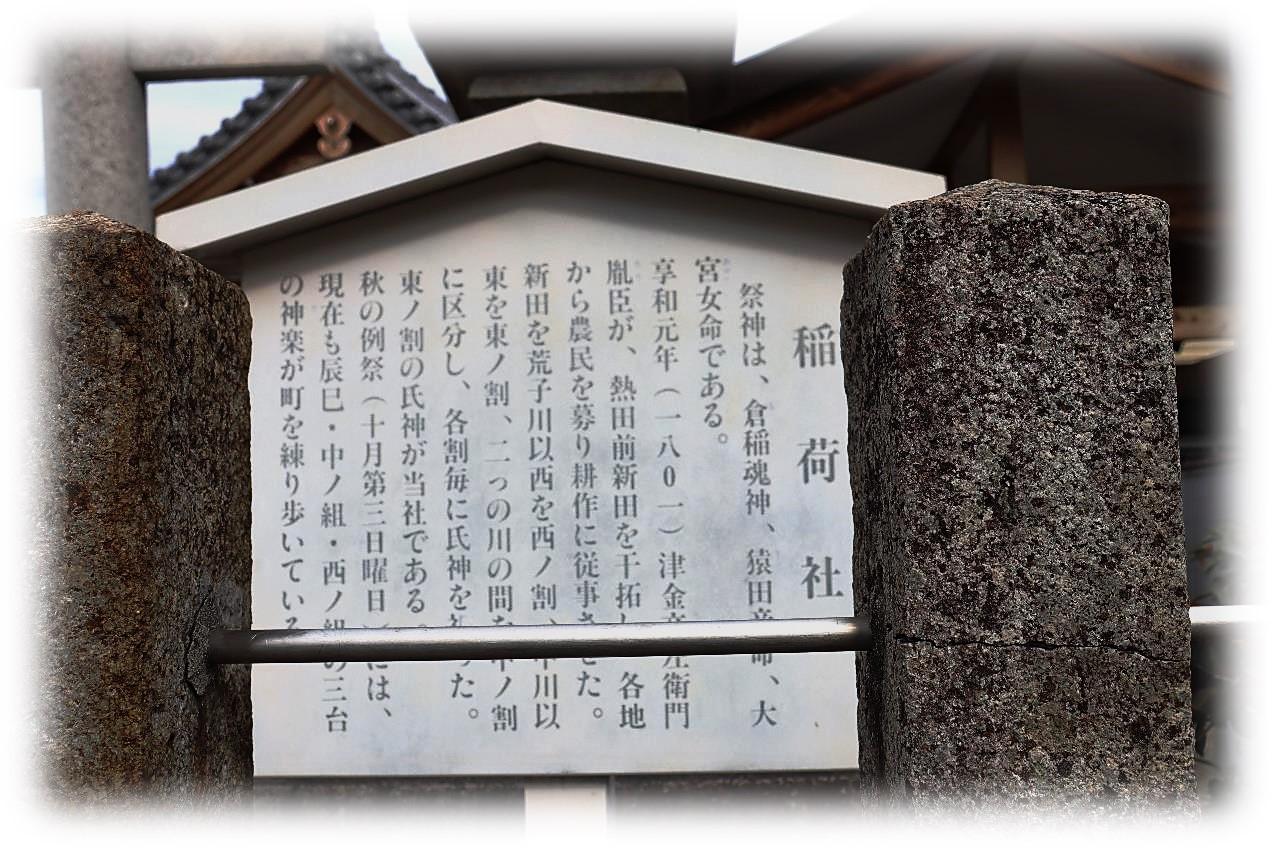 稲荷社
祭神は、倉稲魂神、猿田彦命、大
宮女命である。
享和元年(一八〇一)津金文左衛門
胤臣が、熱田前新田を干拓し、各地
から農民を募り耕作に従事させた。
新田を荒子川以西を西ノ割、中川以
東を東ノ割、二つの川の間を中ノ割
に区分し、各割毎に氏神を祀った。
東ノ割の氏神が当社である。
秋の例祭(十月第三日曜日)には、
現在も辰巳・中ノ組・西ノ組の三台
の神楽が町を練り歩いている